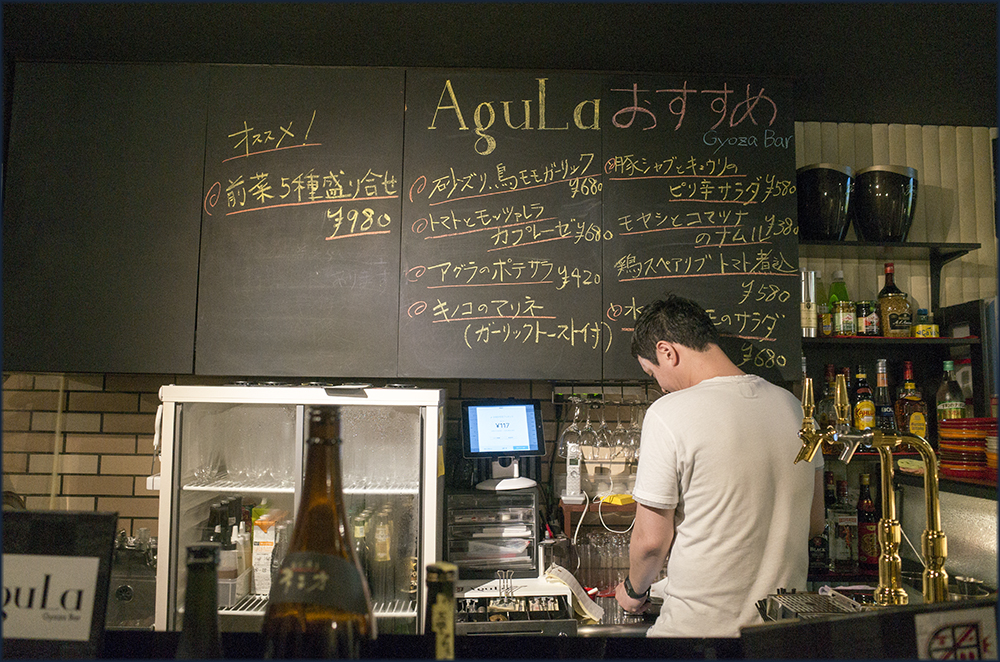 オススメ!
前菜5種盛り合せ
¥980
AguLa
おすすめ
Gyoza Bar
砂ズリ、鳥モモガーリック
¥680
トマトとモッツァレラ
カプレーゼ ¥680
アグラのポテサラ ¥420
キノコのマリネ
(ガーリックトースト付)
豚シャブとキュウリの
ピリ辛サラダ ¥580
モヤシとコマツナ
のナムル ¥380
鶏スペアリブトマト煮込
¥580
水
のサラダ
¥680
¥117
guLa
Gyoza Bar